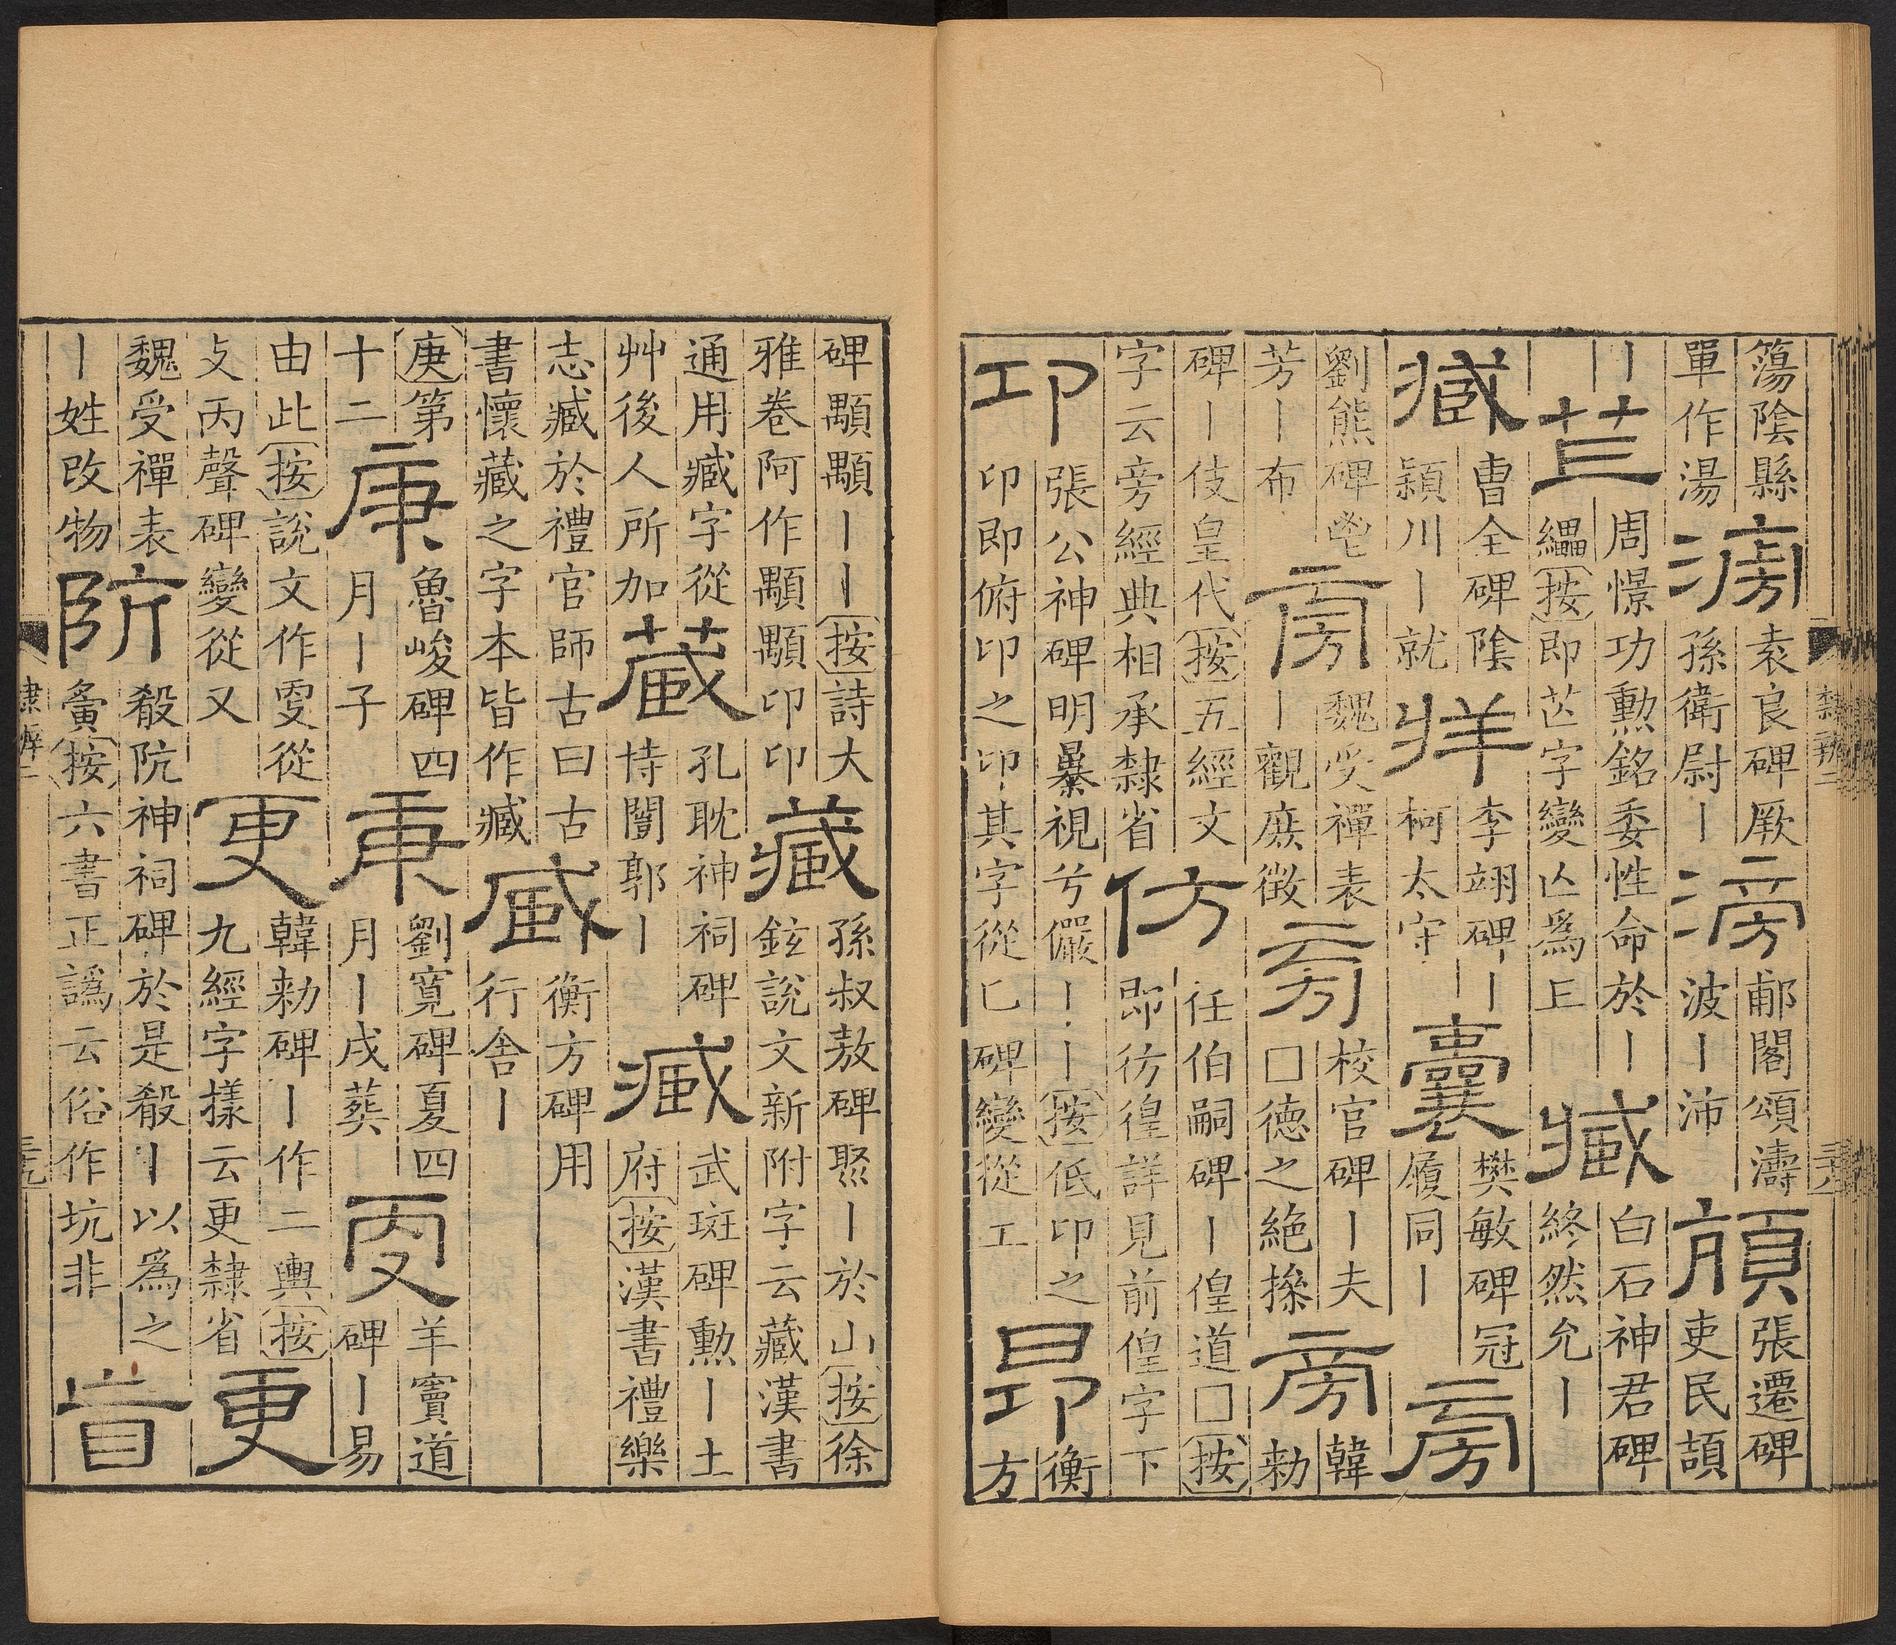 簜陰縣單作湯滂袁良碑厥孫衛尉丨滂郙閣頌濤波丨沛頏張遷碑吏民頡
丨芒周憬功勲銘委性命於丨繩按即芒字變亾爲臧白石神君碑終然允丨
臧曹全碑陰潁川丨就牂李翊碑丨柯太守囊樊敏碑冠履同丨旁
劉熊碑芳丨布旁魏受禪表丨觀庶徵旁校官碑丨夫□德之絶操旁韓勑
碑丨伎皇代按五經文字云旁經典相承隸省彷任伯嗣碑丨偟道□按即彷徨詳見前偟字下
卬張公神碑明㬥視兮儼丨丨按低卬之卬即俯卬之卬其字從匕碑變從工昂衡方
碑顒顒丨丨按詩大雅卷阿作顒顒卬卬藏孫叔敖碑聚丨於山按徐鉉說文新附字云藏漢書
通用臧字從艸後人所加藏孔耽神祠碑恃闇郭丨臧武斑碑勲丨土府按漢書禮樂
志臧於禮官師古曰古書懷藏之字本皆作臧臧衡方碑用行舍丨
庚第十二庚魯峻碑四月丨子庚劉寛碑夏四月丨戌葬㪅羊竇道碑丨易
由此按說文作㪅從攴丙聲碑變從又更韓勑碑丨作二輿按九經字樣云更隸省更
魏受禪表丨姓改物阬殽阬神祠碑於是殽丨以爲之按六書正譌云俗作坑非盲
隸辨二